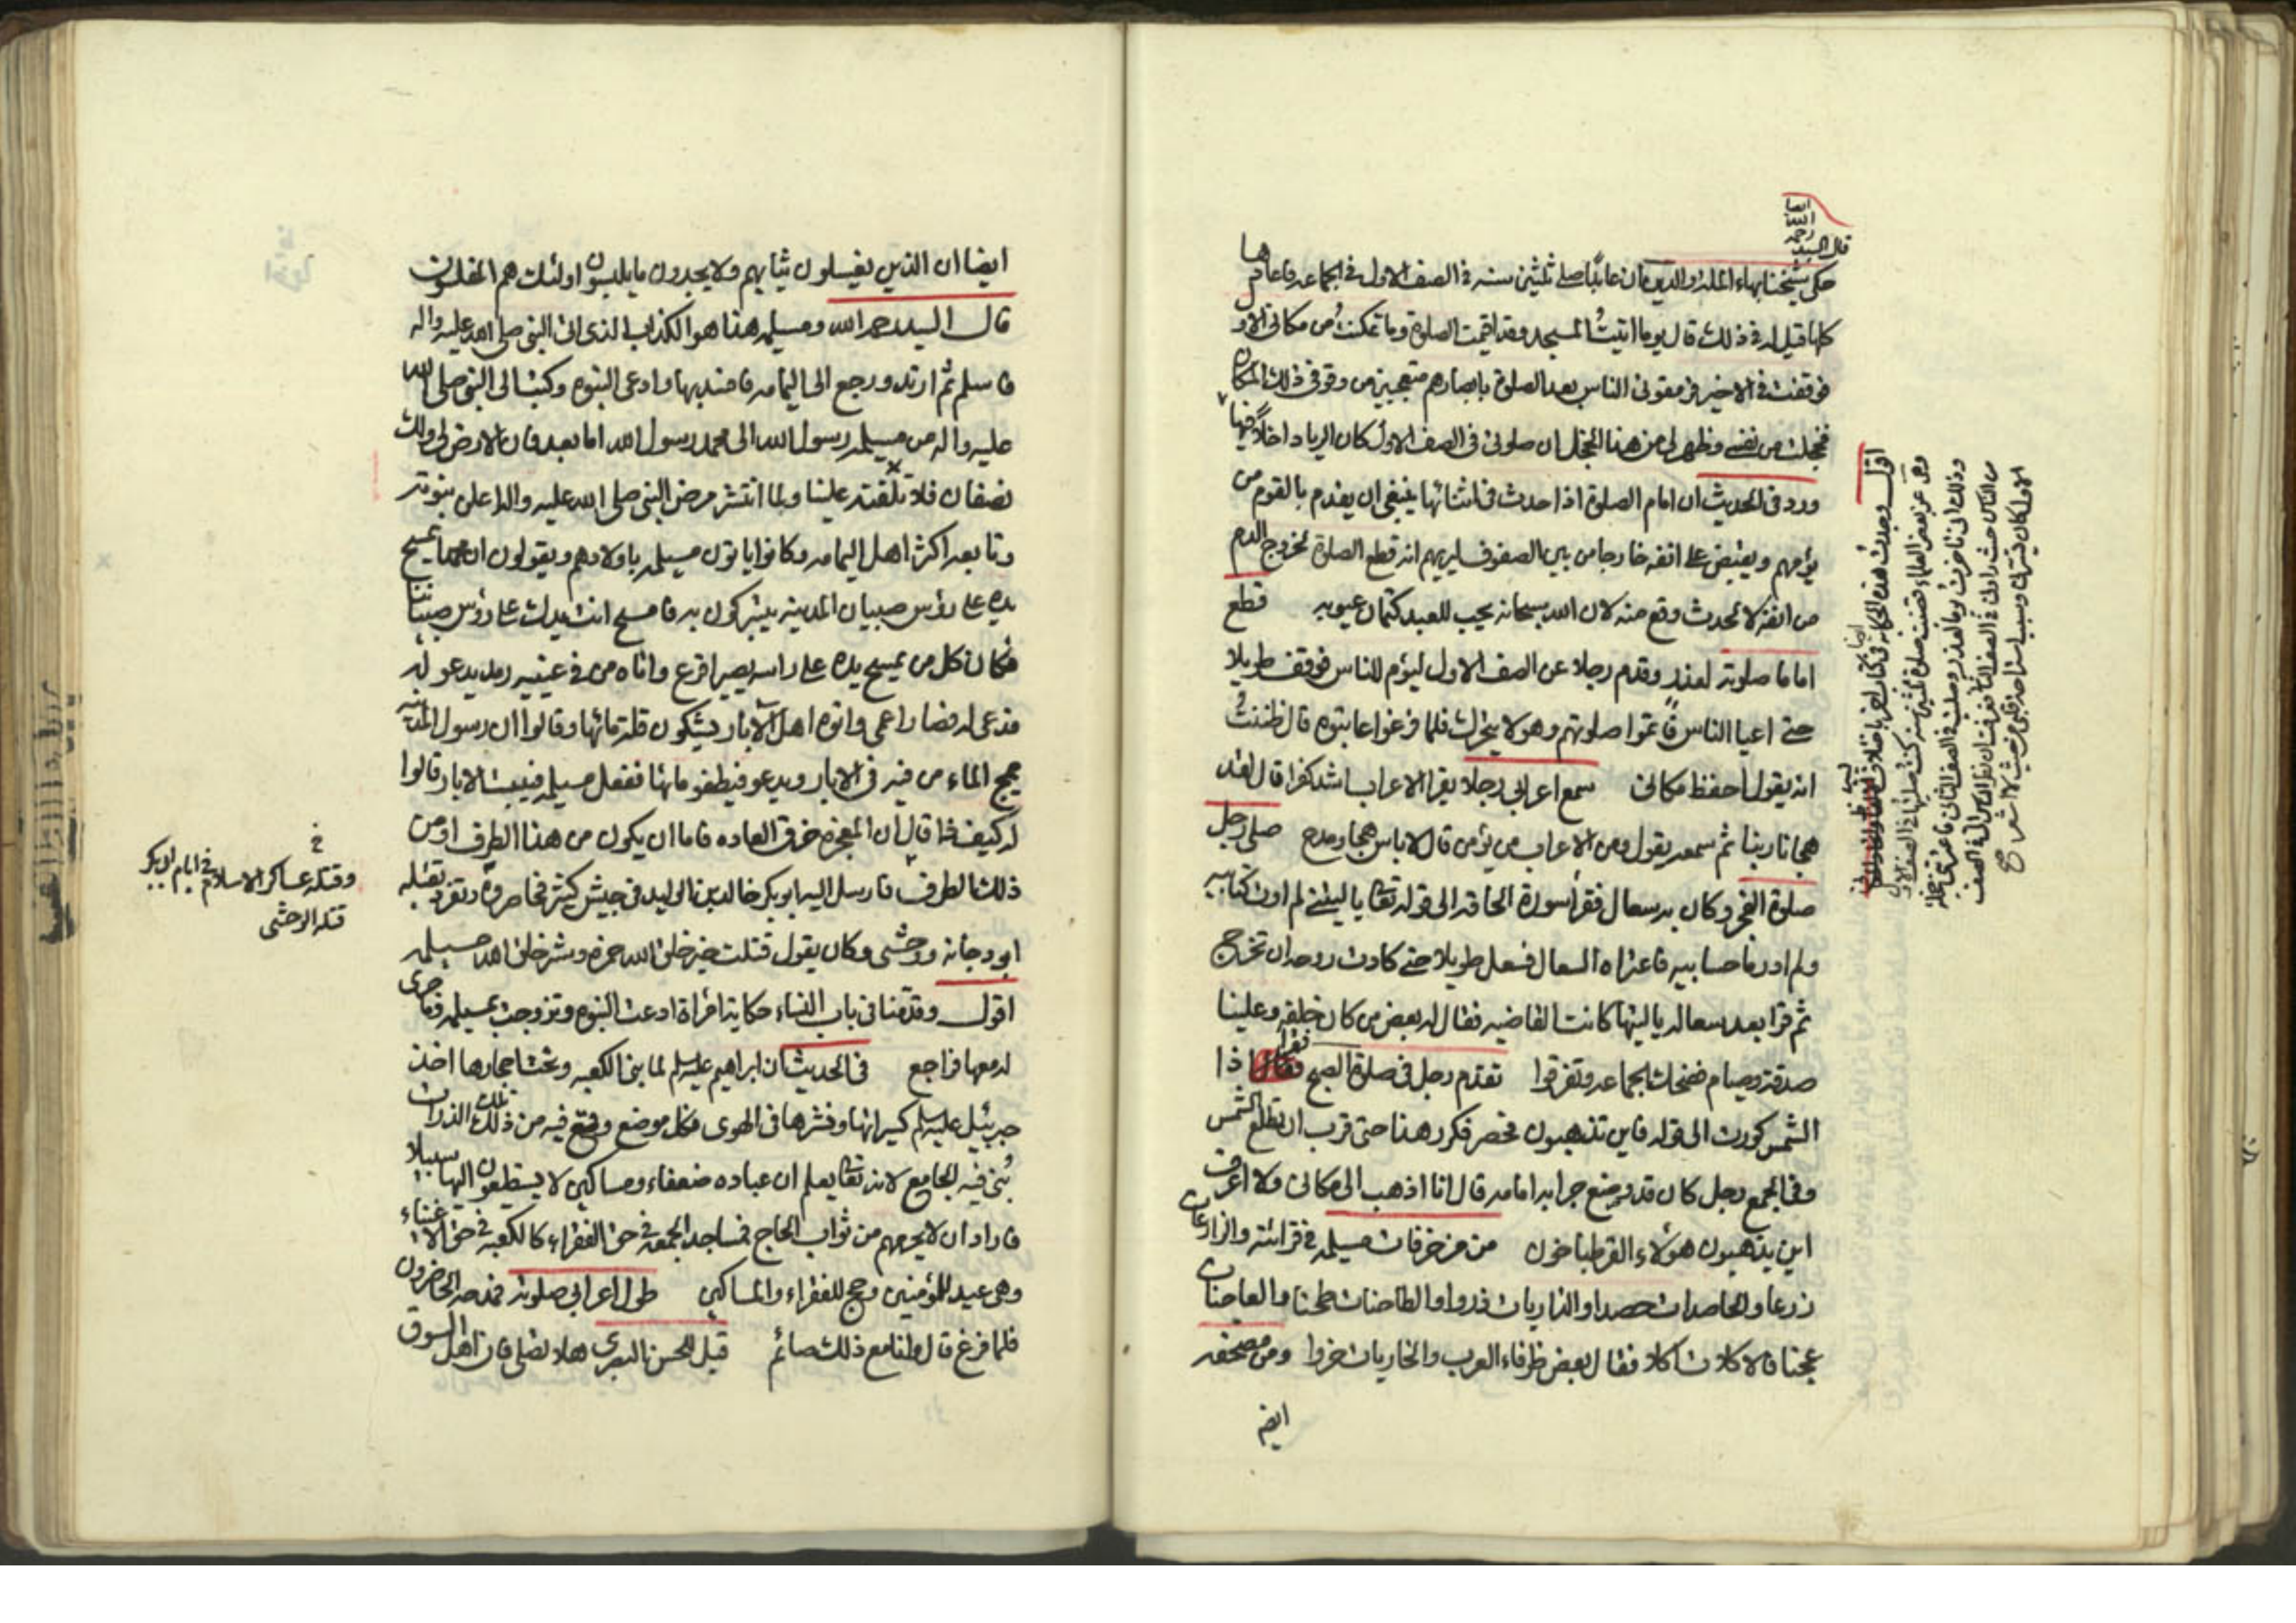 قال السيد
رحمه
الله
ايضا
حكى شيخنا بهاء الملة والدين ان عابدا صلى ثلثين سنه في الصف الاول في الجماعه فاعادها
كلها فقيل له في ذلك قال يوما اتيت المسجد وقد اقيمت الصلوة وما تمكنت من مكاني الاو
فوقفت في الاخير فرمقوني الناس بعد الصلوة بابصارهم متعجبين من وقوفي ذلك المكان
فخجلت من نفسي وظهر لي من هذا الخجل ان صلوتي في الصف الاول كان الرياء داخلا فيها
ورد في الحديث ان امام الصلوة اذا احدث في اثنائها ينبغي ان يقدم بالقوم من
يؤمهم ويقبض على انفه خارجا من بين الصفوف ليريهم انه قطع الصلوة لخروج الدم
من انفه لا لحدث وقع منه لان الله سبحانه يحب للعبد كتمان عيوبه قطع
اماما صلوته لعذر وقدم رجلا من الصف الاول ليؤم للناس فوقف طويلا
حتى اعيا الناس فاتموا صلوتهم وهو لا يتحرك فلما فرغوا عاتبوه قال ظننت
انه يقول احفظ مكاني سمع اعرابي رجلا يقرا الاعراب اشد كفرا قال لقد
هجانا ربنا ثم سمعه يقول ومن الاعراب من يؤمن قال لا باس هجا ومدح صلى رجل
صلوة الفجر وكان به سعال فقرأ سورة الحاقه الى قوله تعا يا ليتني لم اوت كتابيه
ولم ادر ما حسابيه فاعتراه السعال فسعل طويلا حتى كادت روحه ان تخرج
ثم قرا بعد سعاله يا ليتها كانت القاضيه فقال له بعض من كان خلفه وعلينا
صدقة وصيام فضحك الجماعه وتفرقوا تقدم رجل في صلوة الصبح فقرا اذا
الشمس كورت الى قوله فاين تذهبون فحصر فكرر هذا حتى قرب ان تطلع الشمس
وفي الجمع رجل كان قد وضع جرابه امامه قال انا اذهب الى مكاني ولا اعرف
اين يذهبون هؤلاء القرطباخون من مزخرفات مسيلمه في قرائته والزارعات
زرعا والحاصدات حصدا والذاريات ذروا والطاحنات طحنا والعاجنات
عجنا فالاكلات اكلا فقال بعض ظرفاء العرب والخاريات خروا ومن مصحفه
ايض
اقول وجدت هذه الحكايه في كتاب
وهي عن بعض العلماء قضيت صلوة ثلثين سنه كنت صليتها في الصف الاول
وذلك اني تاخرت يوما لعذر وصليت في الصف الثاني فاعترتني خجلة
من الناس حيث راوني في الصف الثاني فعرفت ان نظر الناس الي في الصف
الاول كان يسرني وسبب استراحة قلبي من حيث لا اشعر صح
ايضا ان الذين يغسلون ثيابهم ولا يجدون ما يلبسون اولئك هم المفلسون
قال السيد رحمه الله ومسيلمه هذا هو الكذاب الذي اتى النبي صلى الله عليه واله
فاسلم ثم ارتد ورجع الى اليمامه فافسد بها وادعى النبوه وكتب الى النبي صلى الله
عليه واله من مسيلمه رسول الله الى محمد رسول الله اما بعد فان الارض لي ولك
نصفان فلا علينا ولما انتشر مرض النبي صلى الله عليه واله على نبوته
وتابعه اكثر اهل اليمامه وكانوا ياتون مسيلمه باولادهم ويقولون ان محمدا يمسح
يده على رؤس صبيان المدينه يتبركون به فامسح انت يدك على رؤس صبياننا
فكان كل من يمسح يده على راسه يصير اقرع واتاه من في عينيه رمد يدعو له
فدعى له فصار اعمى واتوه اهل الابار يشكون قلة مائها وقالوا ان رسول المدينه
يمج الماء من فيه في الابار ويدعو فيطفو مائها ففعل مسيلمه فيبست الابار قالوا
له كيف هذا قال ان المعجزه خرق العاده فاما ان يكون من هذا الطرف او من
ذلك الطرف فارسل اليه ابو بكر خالد بن الوليد في جيش كثير فحاصروه وتفرد بقتله
ابو دجانه ووحشى وكان يقول قتلت خير خلق الله حمزه وشر خلق الله مسيلمه
اقول وقدمنا في باب النساء حكاية امراة ادعت النبوه وتزوجت بمسيلمه وما جرى
له معها فراجع في الحديث ان ابراهيم عليه السلم لما بنى الكعبه ونحت احجارها اخذ
جبرئيل عليه السلم كسراتها ونشرها في الهوى فكل موضع وقع فيه من تلك الذرات
بني فيه الجامع لانه تعا يعلم ان عباده ضعفاء ومساكين لا يستطيعون اليها سبيلا
فاراد ان لا يحرمهم من ثواب الحاج فمساجد الجمعه في حق الفقراء كالكعبه في حق الاغنياء
وهي عيد للمؤمنين وحج للفقراء والمساكين طول اعرابي صلوته فمدحه الحاضرون
فلما فرغ قال وانا مع ذلك صائم قيل للحسن البصري هلا تصلي فان اهل السوق
وقتله عساكر الاسلام في ايام ابي بكر
قتله الوحشى